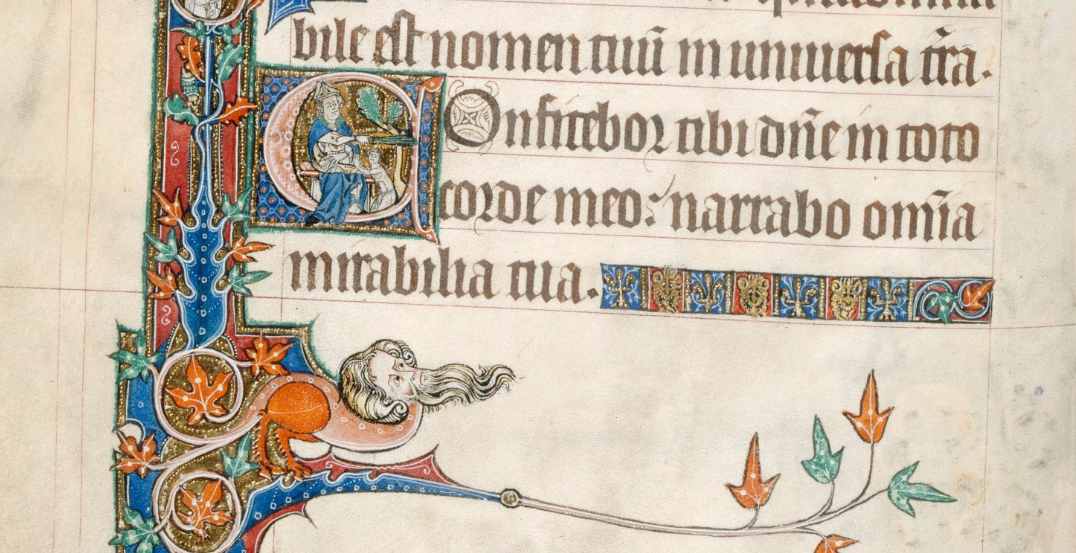 bile est nomen tuū in uniuersa t̄ra.
Confitebor tibi dn̄e in toto
corde meo: narrabo om̄ia
mirabilia tua.